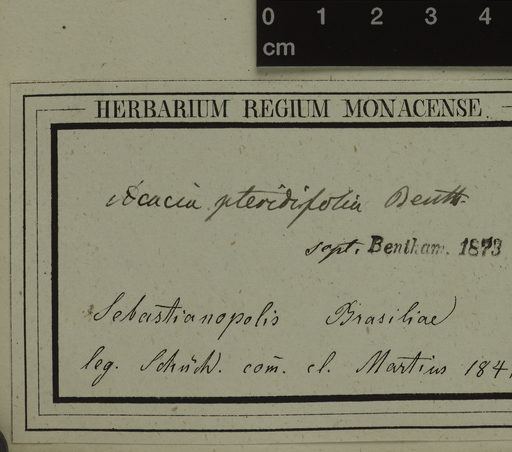 0 1 2 3 4
cm
HERBARIUM REGIUM MONACENSE
Acacia pteridifolia Benth.
sept. Bentham. 1873
Sebastianopolis Brasiliae
leg. Schüch. com̄. cl. Martius 184